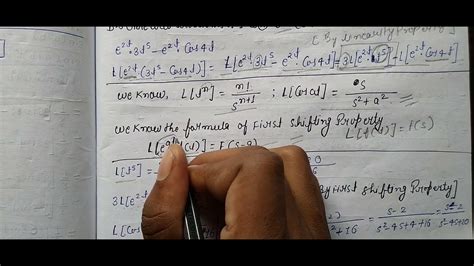 (By Linearity Property)
e^{2t}·3t^5 - e^{2t}·Cos4t
L[e^{2t}·(3t^5 - Cos4t)] = L[e^{2t}·3t^5 - e^{2t}·Cos4t] = 3L[e^{2t}·t^5] - L[e^{2t}·Cos4t]
We Know, L[t^n] = n!/s^{n+1} ; L[Cos at] = s/s^2+a^2
We Know the formula of First Shifting Property
L[f(t)] = f(s)
L[e^{at} f(t)] = F(s-a)
L[t^5] =
3L[e^{2t} by First Shifting Property]
L[Cos +16 = s-2/s^2-4s+4+16 = s-2/s^2-4s+20